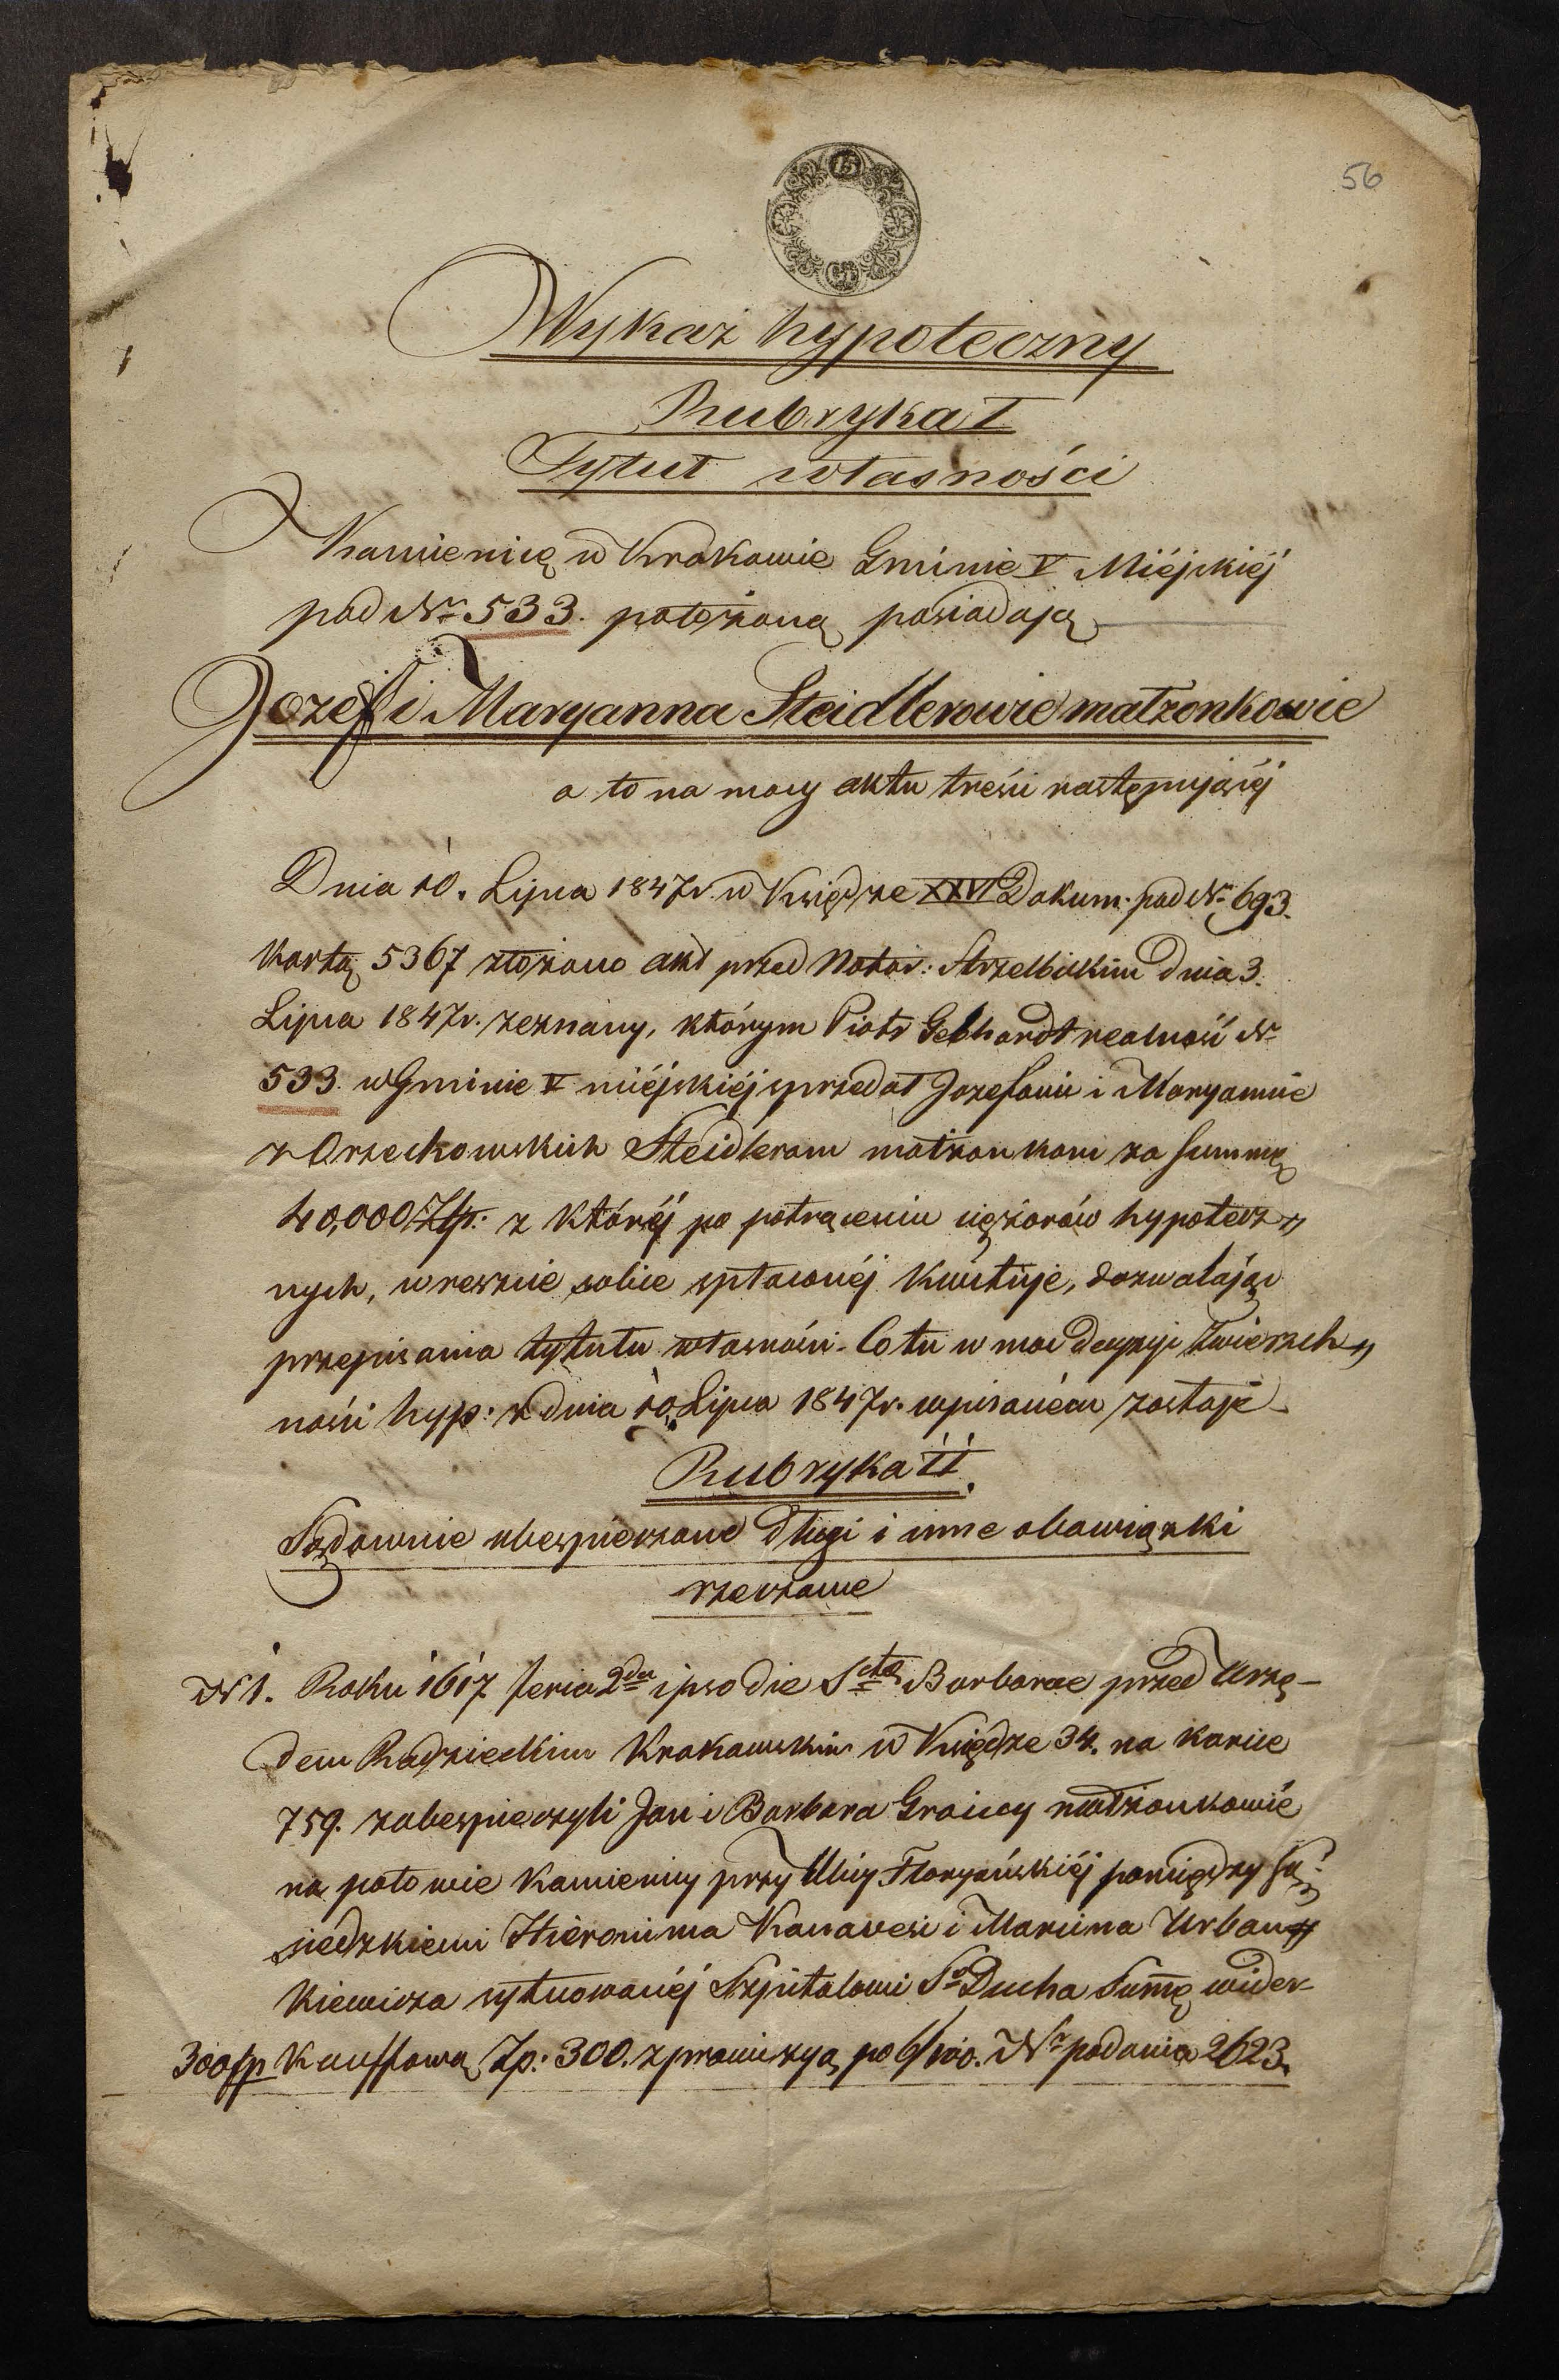 56
15
Wykaz hypoteczny
Rubryka I
Tytuł własności
Kamienicę w Krakowie Gminie V Miéjskiéj
pod Nr 533. położoną posiadają
Jozef i Maryanna Steidlerowie małżonkowie
a to na mocy aktu treści następującéj
Dnia 10. Lipca 1847 r. w Księdze XXVI Dokum. pod Nr 693.
kartą 5367 złożono akt przed Notar: Strzelbickim dnia 3.
Lipca 1847 r. zeznany, którym Piotr Gebhardt realność Nr
533. w Gminie V miéjskiéj sprzedał Jozefowi i Maryannie
z Orzechowskich Steidlerom małżonkom za summę
40,000 Złp: z któréj po potrąceniu ciężarów hypotecz„
nych, w reszcie sobie spłaconéj kwituje, dozwalając
przepisania tytułu własności. Co tu w moc decyzyi Zwierzch„
ności hyp: z dnia 10 Lipca 1847 r. wpisaném zostaje
Rubryka II.
Sądownie ubespieczone długi i inne obowiązki
rzeczowe
N 1. Roku 1617 feria 2da ipso die Sctae Barbarae przed Urzę-
dem Radzieckim Krakowskim w Księdze 34. na karcie
759. zabespieczyli Jan i Barbara Graiccy małżonkowie
na połowie kamienicy przy Ulicy Floryańskiéj pomiędzy Są-
siedzkiemi Hieronima Kanavesi i Marcina Urban„
kiewicza sytuowanéj Szpitalowi So Ducha Summę wider-
300 fp kauffową Zp: 300. z prowizyą po 6/100. Nr podania 2623.